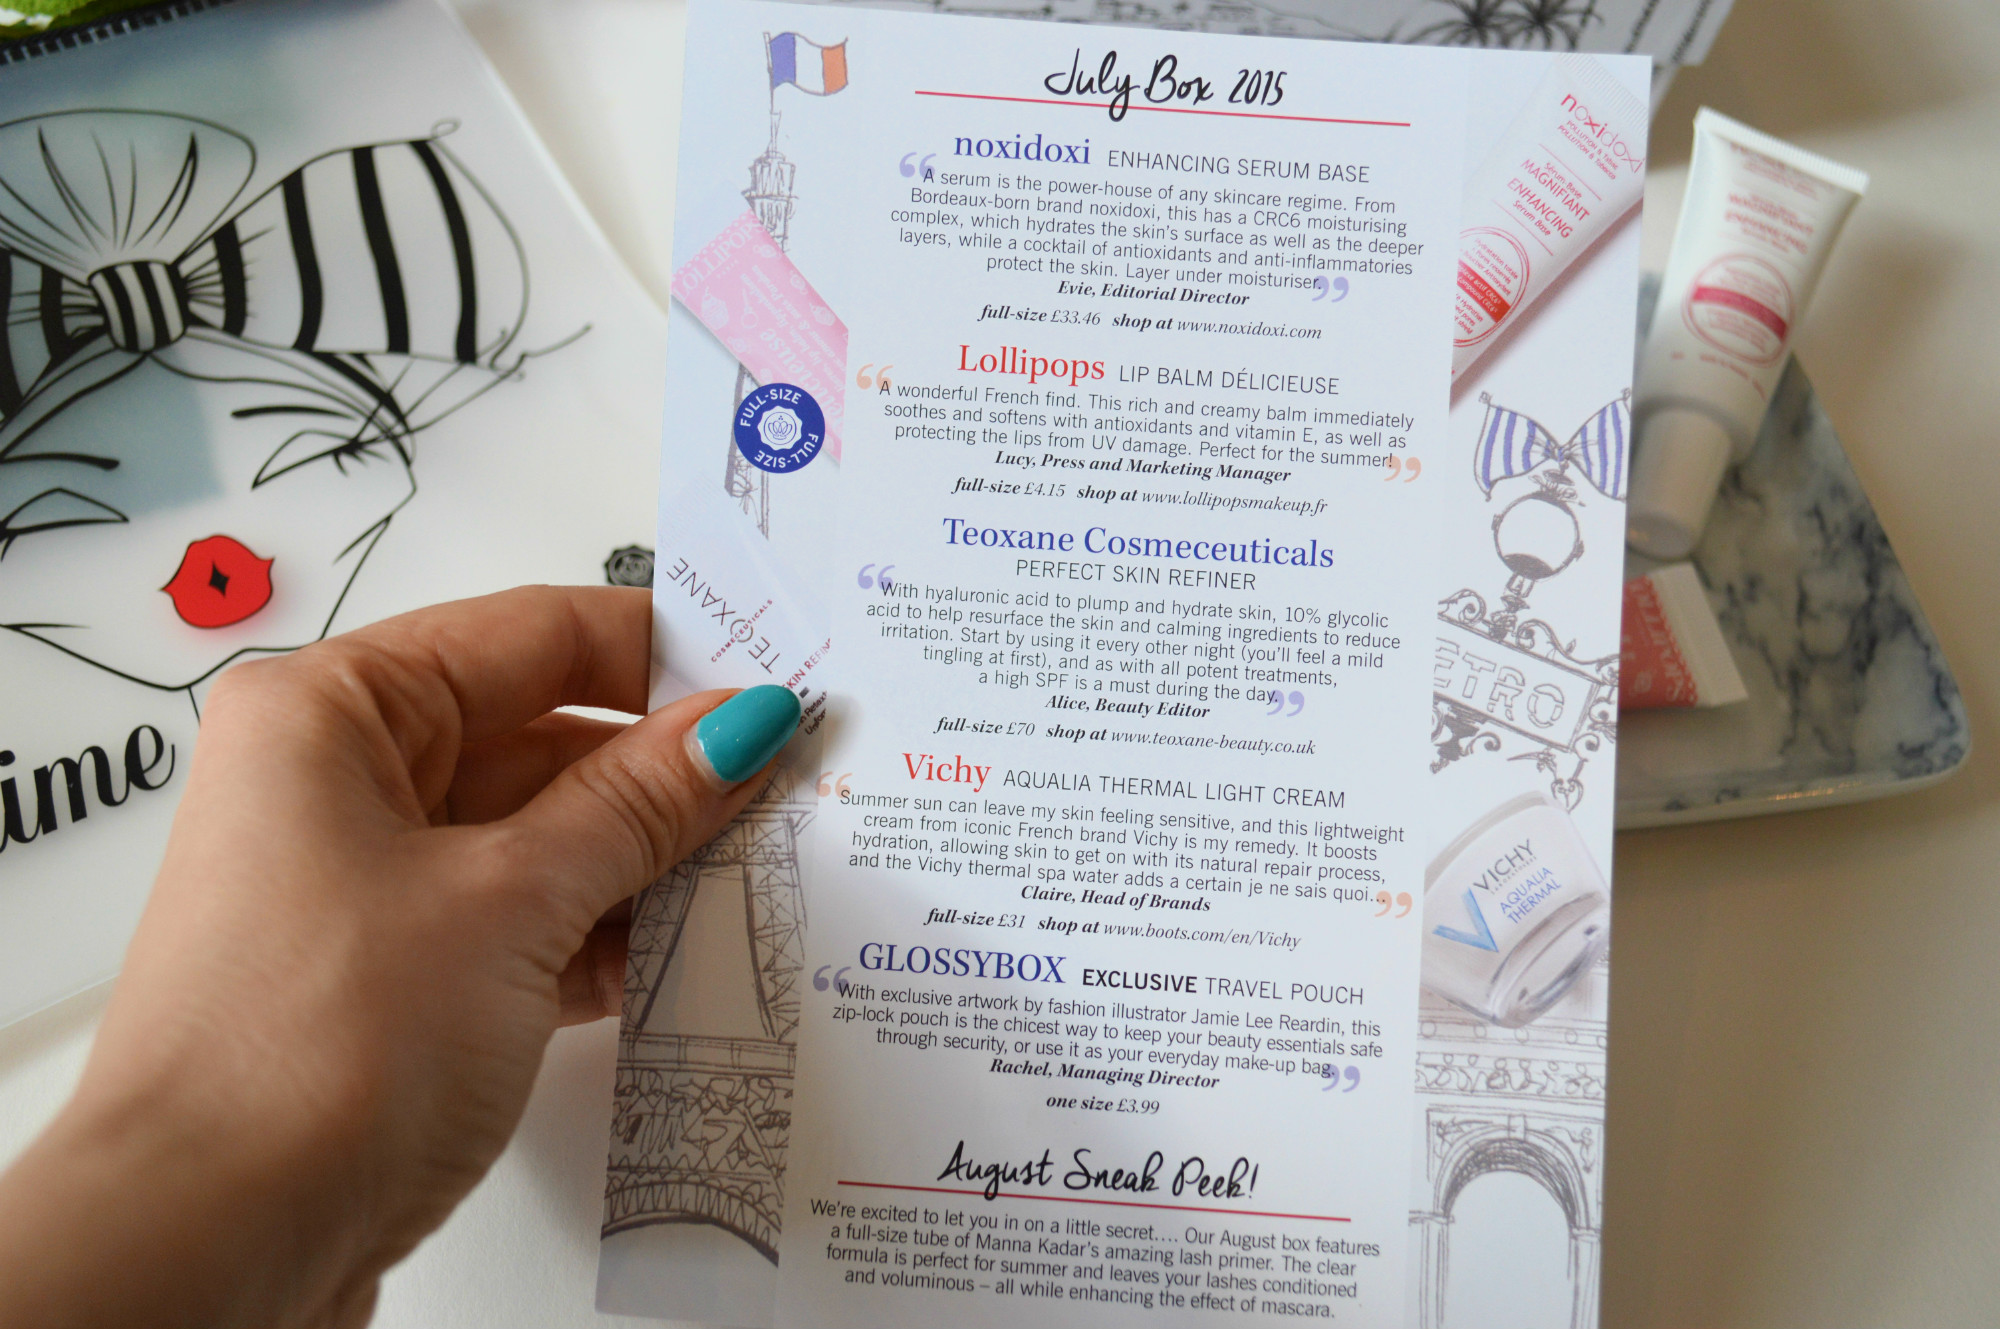 July Box 2015
noxidoxi ENHANCING SERUM BASE
“A serum is the power-house of any skincare regime. From
Bordeaux-born brand noxidoxi, this has a CRC6 moisturising
complex, which hydrates the skin's surface as well as the deeper
layers, while a cocktail of antioxidants and anti-inflammatories
protect the skin. Layer under moisturiser.”
Evie, Editorial Director
full-size £33.46 shop at www.noxidoxi.com
Lollipops LIP BALM DÉLICIEUSE
“A wonderful French find. This rich and creamy balm immediately
soothes and softens with antioxidants and vitamin E, as well as
protecting the lips from UV damage. Perfect for the summer!”
Lucy, Press and Marketing Manager
full-size £4.15 shop at www.lollipopsmakeup.fr
Teoxane Cosmeceuticals
PERFECT SKIN REFINER
“With hyaluronic acid to plump and hydrate skin, 10% glycolic
acid to help resurface the skin and calming ingredients to reduce
irritation. Start by using it every other night (you'll feel a mild
tingling at first), and as with all potent treatments,
a high SPF is a must during the day.”
Alice, Beauty Editor
full-size £70 shop at www.teoxane-beauty.co.uk
Vichy AQUALIA THERMAL LIGHT CREAM
“Summer sun can leave my skin feeling sensitive, and this lightweight
cream from iconic French brand Vichy is my remedy. It boosts
hydration, allowing skin to get on with its natural repair process,
and the Vichy thermal spa water adds a certain je ne sais quoi...”
Claire, Head of Brands
full-size £31 shop at www.boots.com/en/Vichy
GLOSSYBOX EXCLUSIVE TRAVEL POUCH
“With exclusive artwork by fashion illustrator Jamie Lee Reardin, this
zip-lock pouch is the chicest way to keep your beauty essentials safe
through security, or use it as your everyday make-up bag.”
Rachel, Managing Director
one size £3.99
August Sneak Peek!
We're excited to let you in on a little secret.... Our August box features
a full-size tube of Manna Kadar's amazing lash primer. The clear
formula is perfect for summer and leaves your lashes conditioned
and voluminous – all while enhancing the effect of mascara.
LOLLIPOPS
FULL-SIZE
FULL-SIZE
TEOXANE
COSMECEUTICALS
noxidoxi
Sérum Base
MAGNIFIANT
ENHANCING
Serum Base
ETRO
VICHY
LABORATOIRES
AQUALIA
THERMAL
ime